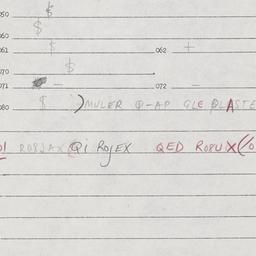 050 $
060 $
061 $ 062 +
070 $
071 – 072 –
080 $ )MULER Q-AP GLE PLASTE
01 ROBJAX Qi RojEX QED ROPUX